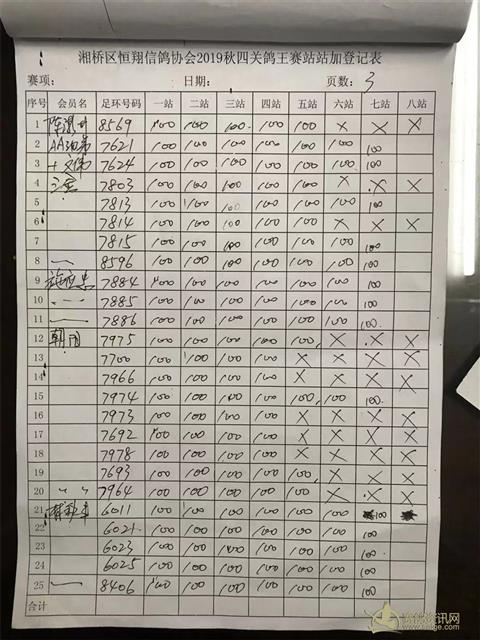 湘桥区恒翔信鸽协会2019秋四关鸽王赛站站加登记表
赛项: 日期: 页数: 3
序号 会员名 足环号码 一站 二站 三站 四站 五站 六站 七站 八站
1 8569 100 100 100 100 100 × × ×
2 7621 100 100 100 100 100 100 100
3 7624 100 100 100 100 100 100 100
4 7803 100 100 100 100 100 × × ×
5 7813 100 100 100 100 100 100 100
6 7814 100 100 100 100 100 × × ×
7 7815 100 100 100 100 100 100 100
8 8596 100 100 100 100 100 100 100
9 7884 100 100 100 100 100 100 100
10 7885 100 100 100 100 100 100 100
11 7886 100 100 100 100 100 100 100
12 7975 100 100 100 100 100 × × ×
13 7700 100 100 100 100 × × × ×
14 7966 100 100 100 100 × × × ×
15 7974 100 100 100 100 100 100 100
16 7973 100 100 100 100 × × × ×
17 7692 100 100 100 100 × × × ×
18 7978 100 100 100 100 × × × ×
19 7693 100 100 100 100 100 × × ×
20 7964 100 100 100 100 100 × × ×
21 6011 100 100 100 100 100 100 100
22 6021 100 100 100 100 100 100 100
23 6023 100 100 100 100 100 100 100
24 6025 100 100 100 100 100 100 100
25 8406 100 100 100 100 100 100 100
合计